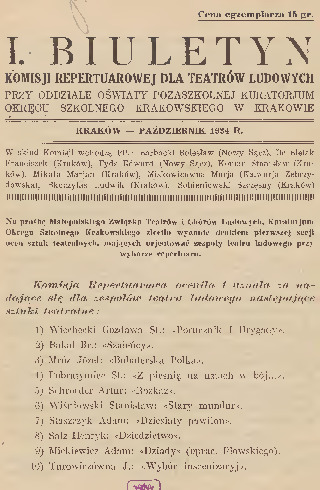 Cena egzemplarza 15 gr.
I. BIULETYN
KOMISJI REPERTUAROWEJ DLA TEATRÓW LUDOWYCH
PRZY ODDZIALE OŚWIATY POZASZKOLNEJ KURATORJUM
OKRĘGU SZKOLNEGO KRAKOWSKIEGO W KRAKOWIE
KRAKÓW — PAŹDZIERNIK 1934 R.
W skład Komisji wchodzą Bolesław (Nowy Sącz),
Franciszek (Kraków), Edward (Nowy Sącz), Stanisław (Kra-
ków), Mikuła Marjan (Kraków), Marja
Ludwik (Kraków), Szczęsny (Kraków)
Na prośbę Małopolskiego Związku Teatrów i Chórów Ludowych, Kuratorjum
Okręgu Szkolnego Krakowskiego zleciło wydanie drukiem pierwszej serji
ocen sztuk teatralnych, mających orjentować zespoły teatru ludowego przy
wyborze repertuaru.
Komisja Repertuarowa oceniła i uznała za na-
dające się dla zespołów teatru ludowego następujące
sztuki teatralne:
1) Gozdawa St.: «Porucznik I Brygady».
2) Bakal Br.: «Szaleńcy».
3) Mróz Józef: «Bohaterska Polka».
4) St.: «Z pieśnią na ustach w bój...».
5) Schroeder Artur: «Rozkaz».
6) Wiśniowski Stanisław: «Stary mundur».
7) Staszczyk Adam: «Dziesiąty pawilon».
8) Salz Henryk: «Dziedzictwo».
9) Mickiewicz Adam: «Dziady» (oprac. Piowskiego).
10) Turowiczówna J.: «Wybór inscenizacyj».